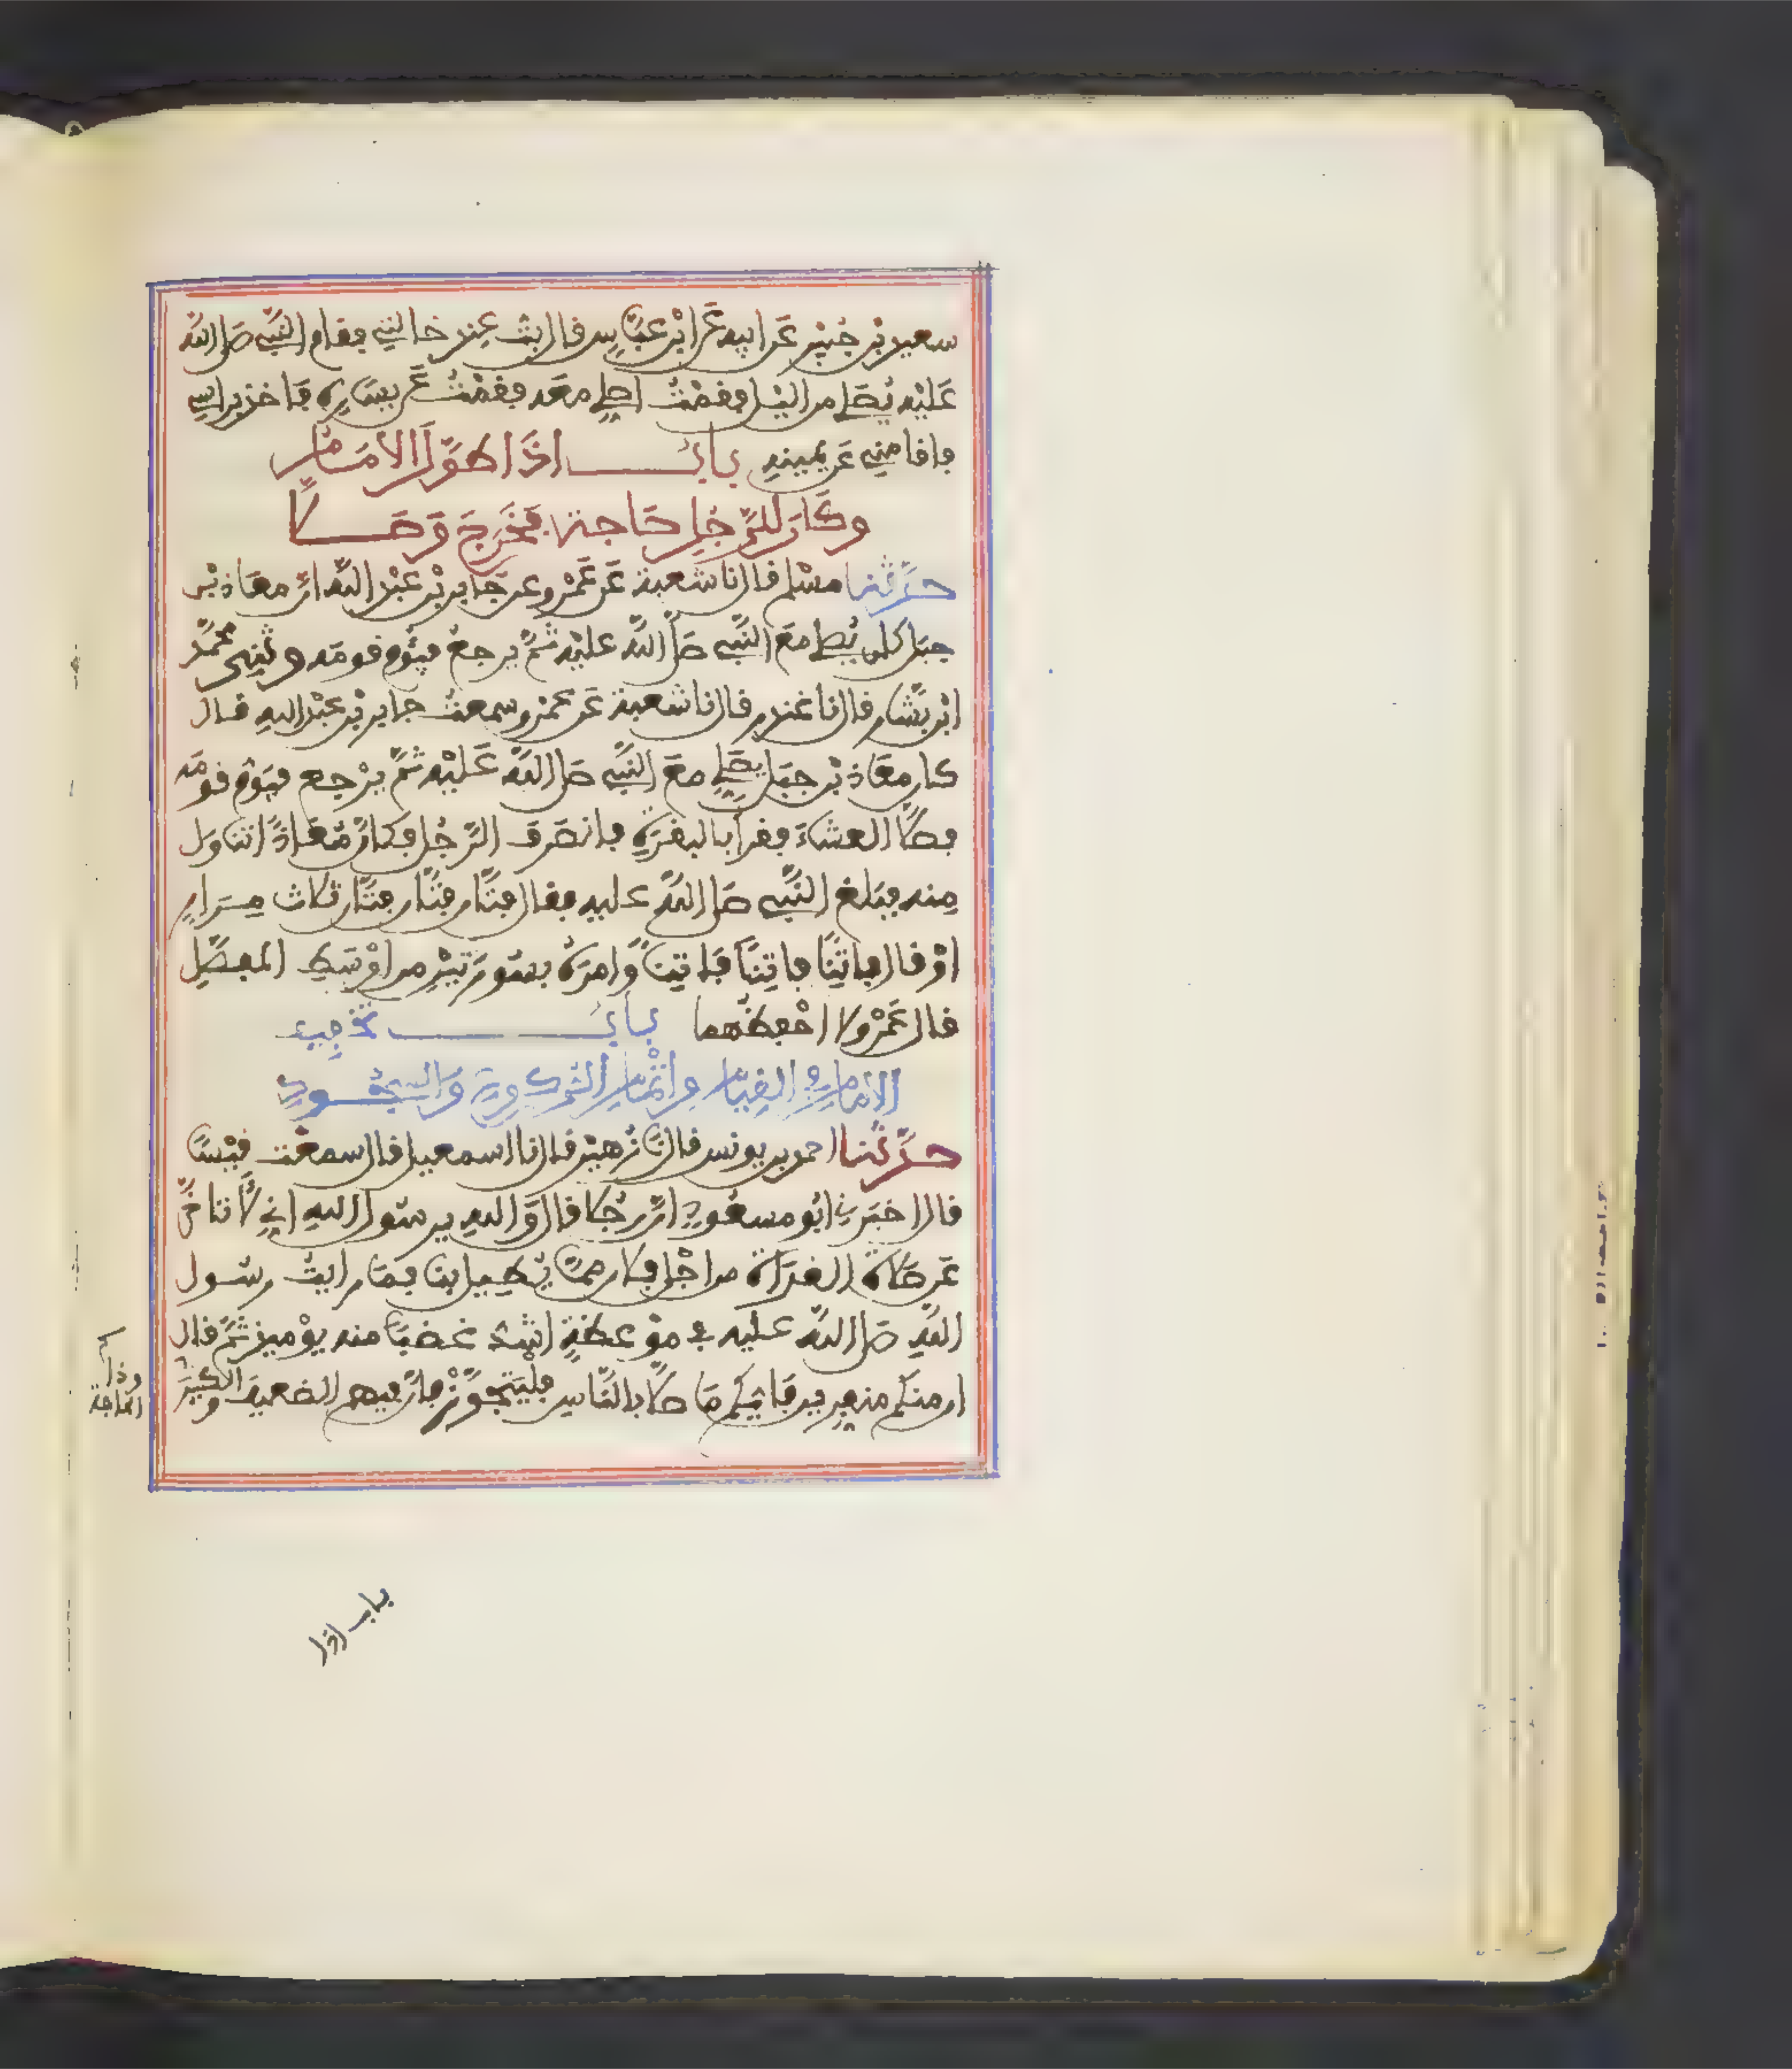 سعيد بن جبير عن ابيه عن ابن عباس قال بت عند خالتي فقام النبي صلى الله
عليه يصلي من اليل فقمت اصلي معه فقمت عن يساره فاخذ براسي
فاقامني عن يمينه باب اذا طول الامام
وكان للرجل حاجة فخرج وصلا
حدثنا مسلم قال نا شعبة عن عمرو عن جابر بن عبد الله ان معاذ بن
جبل كان يصلي مع النبي صلى الله عليه ثم يرجع فيؤم قومه وثني محمد
ابن بشار قال نا غندر قال نا شعبة عن عمرو سمعت جابر بن عبد الله قال
كان معاذ بن جبل يصلي مع النبي صلى الله عليه ثم يرجع فيؤم قومه
فصلا العشاء فقرأ بالبقرة فانصرف الرجل فكان معاذا تناول
منه فبلغ النبي صلى الله عليه فقال فتان فتان فتان ثلاث مرار
او قال فاتنا فاتنا فاتنا وامره بسورتين من اوسط المفصل
قال عمرو لا احفظهما باب تخفيف
الامام في القيام واتمام الركوع والسجود
حدثنا احمد بن يونس قال نا زهير قال نا اسمعيل قال سمعت قيسا
قال اخبرني ابو مسعود ان رجلا قال والله يرسول الله اني لاتاخر
عن صلاة الغداة من اجل فلان مما يطيل بنا فما رايت رسول
الله صلى الله عليه في موعظة اشد غضبا منه يوميذ ثم قال
ان منكم منفرين فايكم ما صلا بالناس فليتجوز فان فيهم الضعيف والكبير
وذا
الحاجة
باب اذا